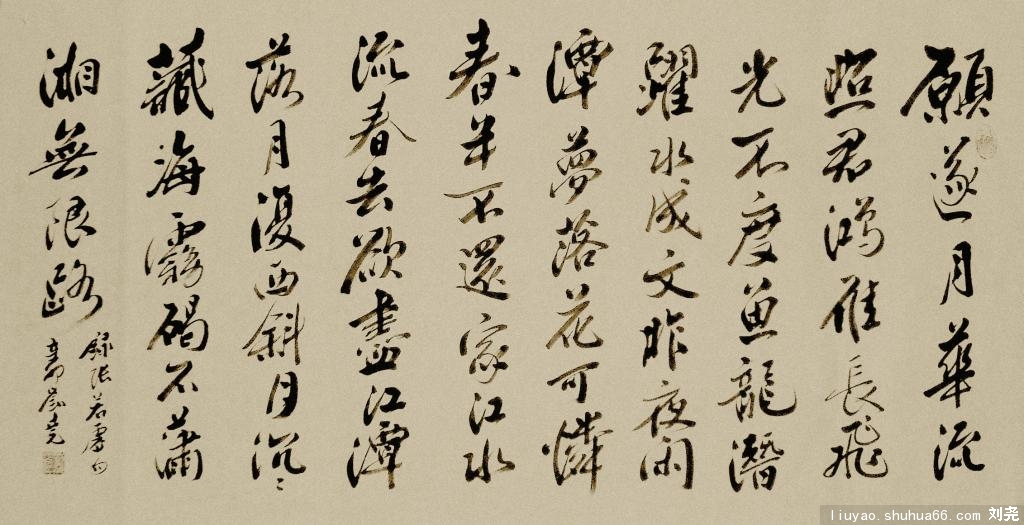 願遂月華流
照君鴻雁長飛
光不度魚龍潛
躍水成文昨夜閑
潭夢落花可憐
春半不還家江水
流春去欲盡江潭
落月復西斜月沉〻
藏海霧碣石瀟
湘無限路
錄張若虛句
辛卯劉堯
liuyao.shuhua66.com 刘尧